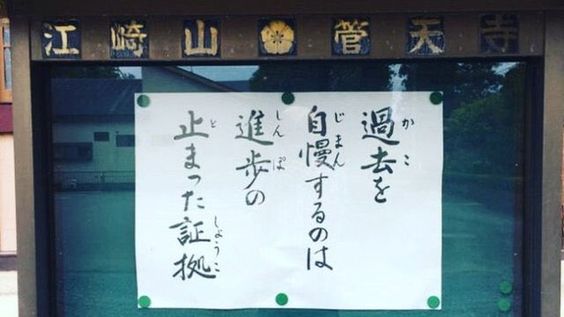 江崎山 管天寺
かこ
過去を
じまん
自慢するのは
しんぽ
進歩の
と しょうこ
止まった証拠